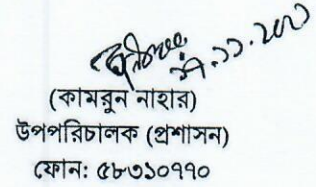 (কামরুন নাহার)
উপপরিচালক (প্রশাসন)
ফোন: ৫৮৩১০৭৭০